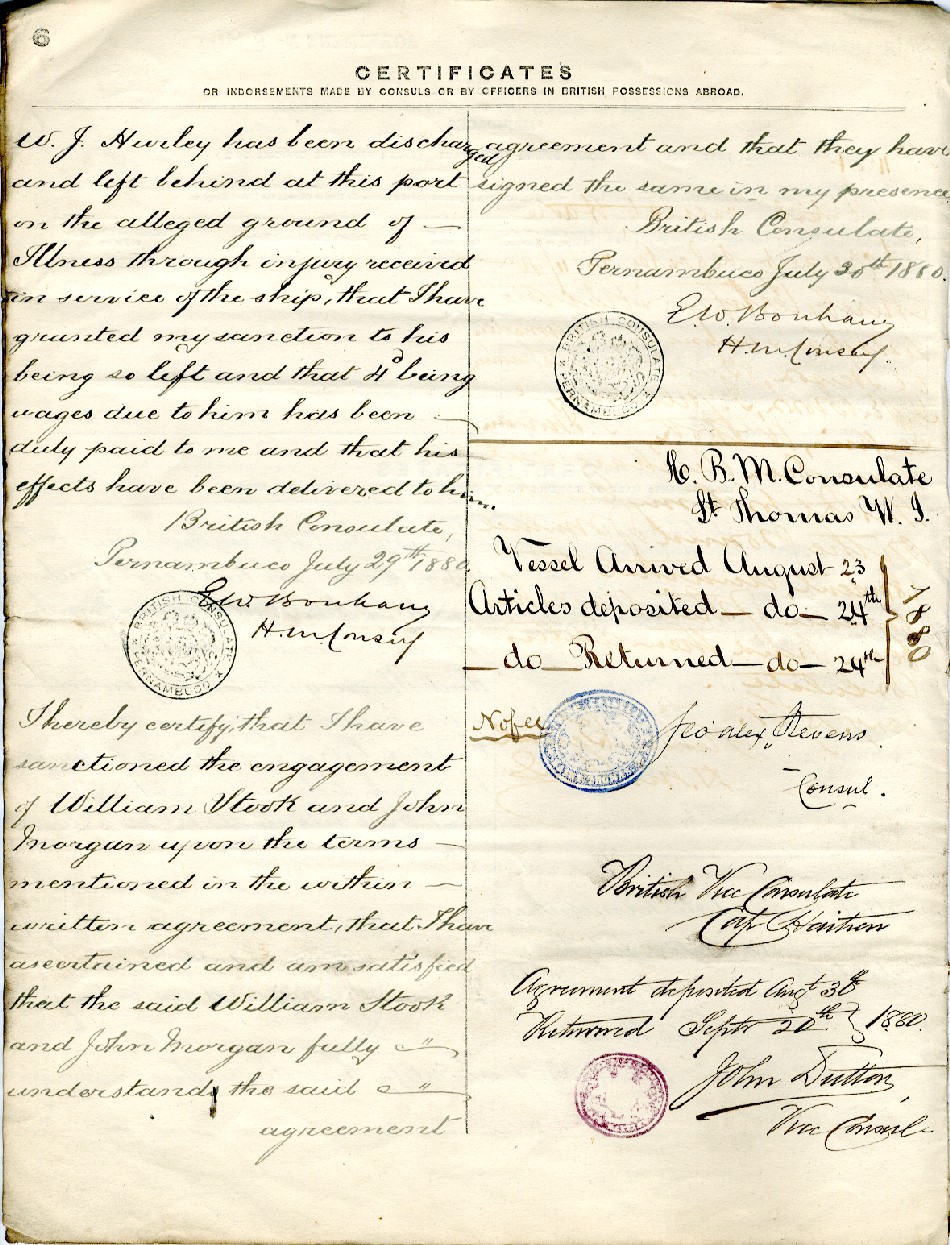 6
CERTIFICATES
OR INDORSEMENTS MADE BY CONSULS OR BY OFFICERS IN BRITISH POSSESSIONS ABROAD.
W. J. Hurley has been discharged
and left behind at this port
on the alleged ground of —
Illness through injury received
in service of the ship, that I have
granted my sanction to his
being so left and that being
wages due to him has been —
duly paid to me and that his
effects have been delivered to him.
British Consulate,
Pernambuco July 29th 1880.
E W. Bonham
H. M. Consul
BRITISH CONSULATE PERNAMBUCO
I hereby certify, that I have
sanctioned the engagement
of William Stook and John
Morgan upon the terms —
mentioned in the within —
written agreement, that I have
ascertained and am satisfied
that the said William Stook
and John Morgan fully
understands the said
agreement
agreement and that they have
signed the same in my presence
British Consulate,
Pernambuco July 30th 1880.
E W. Bonham
H. M. Consul.
BRITISH CONSULATE PERNAMBUCO
H. B. M. Consulate
St Thomas W. I.
Vessel Arrived August 23
Articles deposited — do — 24th
— do Returned — do — 24th
1880
No fee
Stevens
Consul.
British Vice Consulate
Cap Haitien
Agreement deposited Augt 30th
Returned Septr 20th } 1880.
John Dutton,
Vice Consul